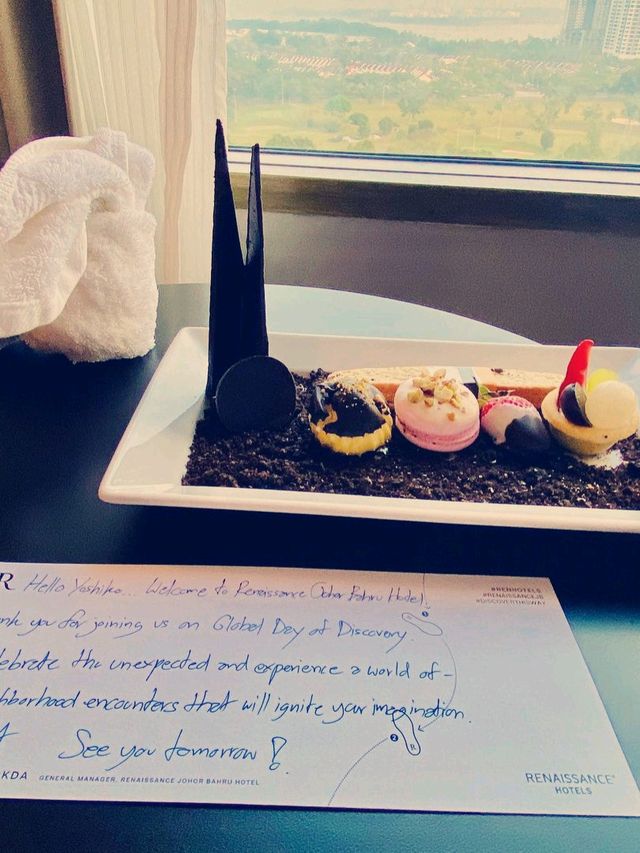 R Hello Yoshiko... Welcome to Renaissance Johor Bahru Hotel!
#RENHOTELS
#RENAISSANCEJB
#DISCOVERTHISWAY
you for joining us on Global Day of Discovery.
the unexpected and experience a world of-
encounters that will ignite your imagination.
See you tomorrow!
GENERAL MANAGER, RENAISSANCE JOHOR BAHRU HOTEL
2
R
RENAISSANCE®
HOTELS